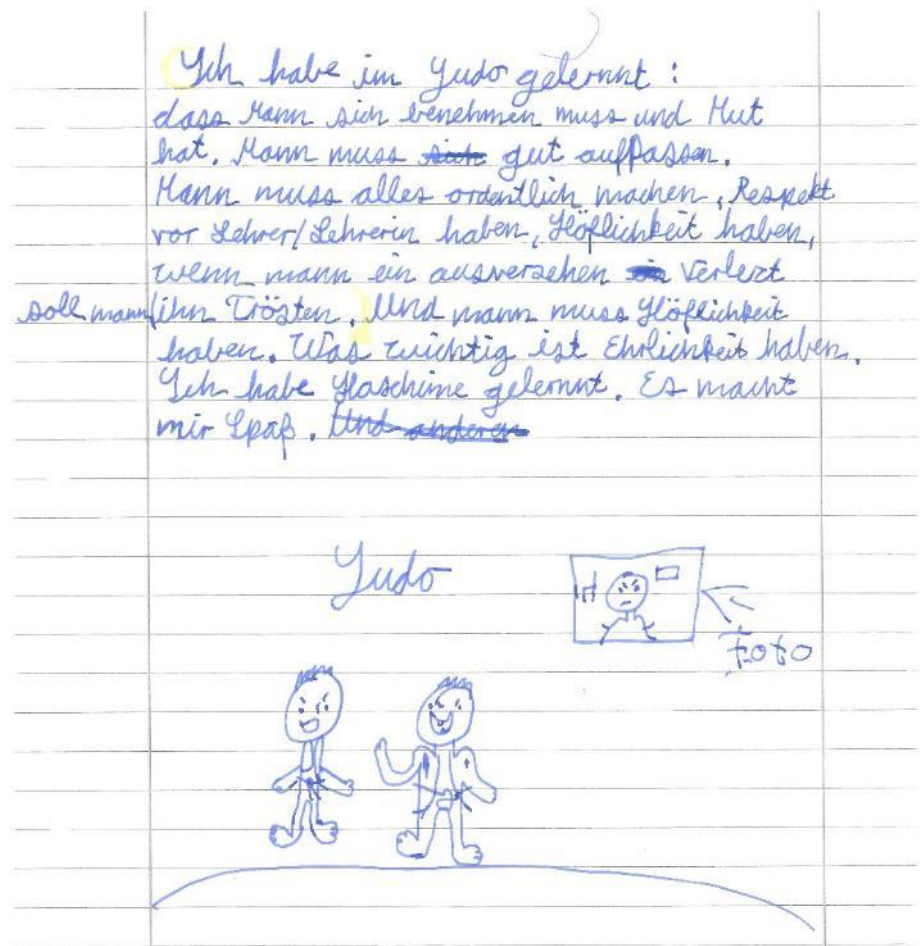 Ich habe im Judo gelernnt :
dass Mann sich benehmen muss und Mut
hat. Mann muss sich gut auffassen.
Mann muss alles ordentlich machen, Respekt
vor Lehrer/Lehrerin haben, Höflichkeit haben,
wenn mann ein ausversehen Verlezt
soll mann ihn Trösten. Und mann muss Höflichkeit
haben. Was wichtig ist Ehrlichkeit haben.
Ich habe Haschime gelernnt. Es macht
mir Spaß. Und anderen
Judo
foto